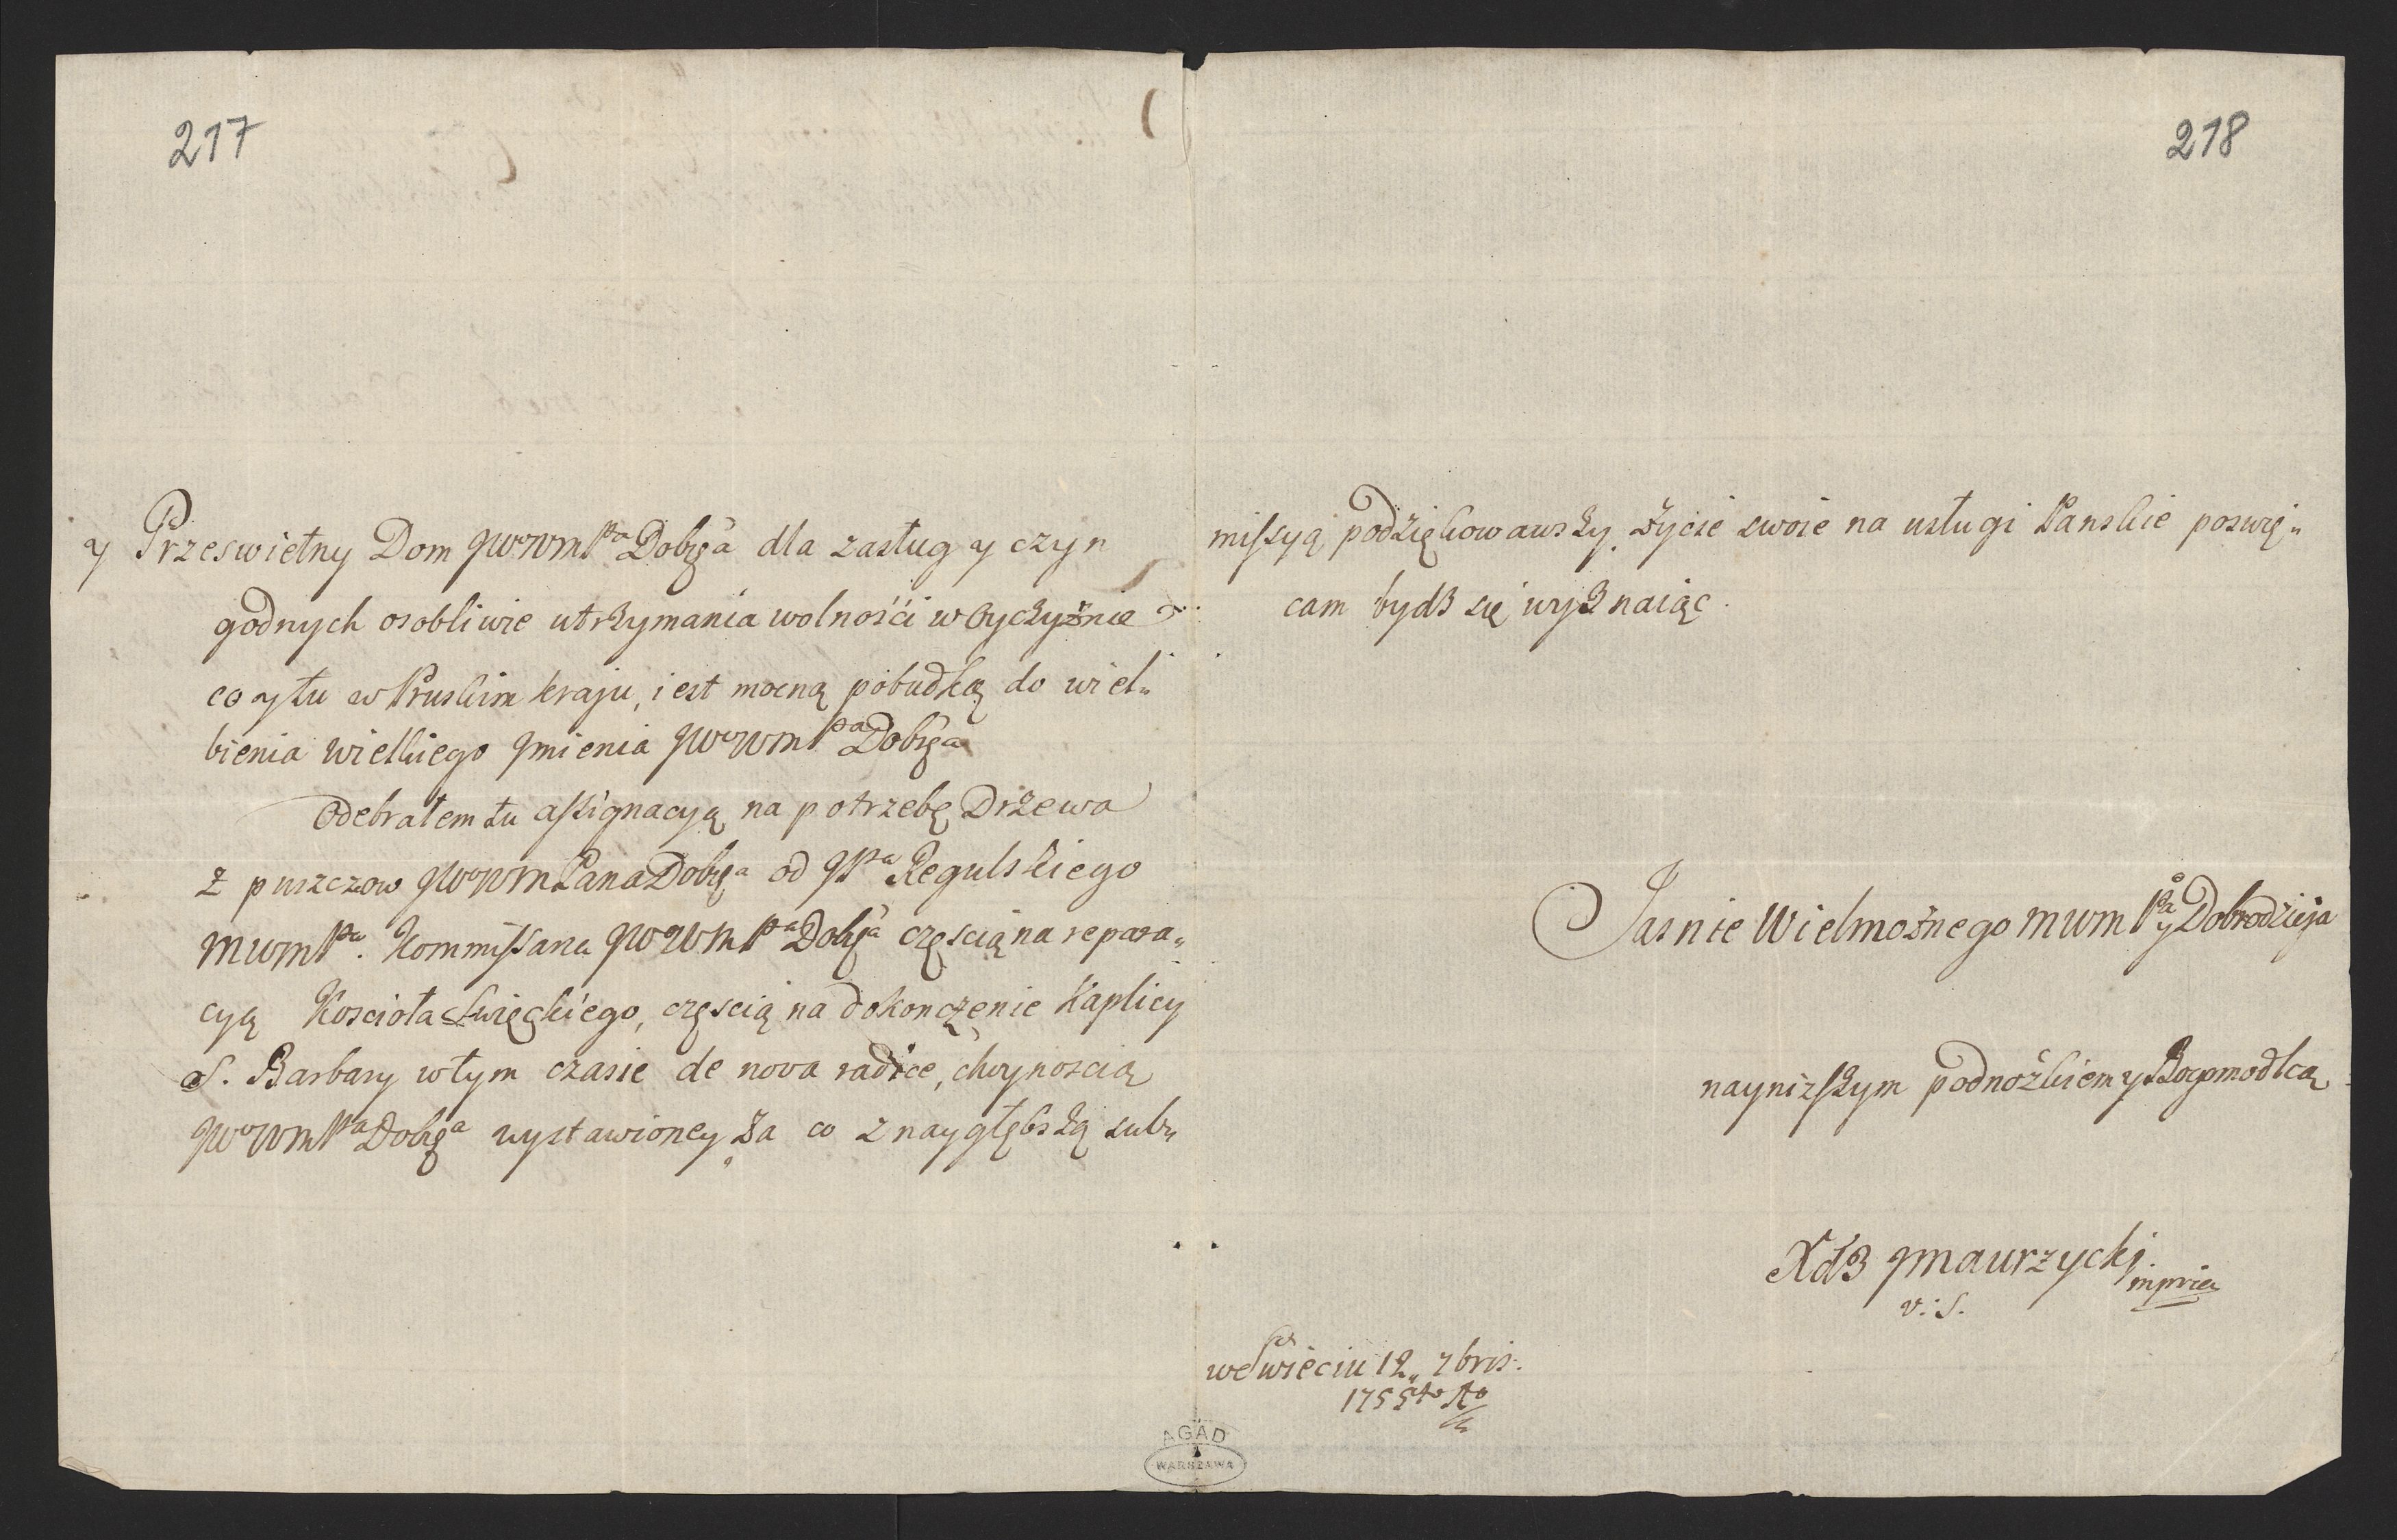 217
y Przeswietny Dom JWWMPa Dobrga dla zasług y czyn
godnych osobliwie utrzymania wolności w Oyczyźnie
co y tu w Pruskim kraju, iest mocną pobudką do wiel„
bienia wielkiego Jmienia JWWMPa Dobrga
Odebrałem tu assignacyą na potrzebę Drzewa
z puszczow JWWMPana Dobrga od JPa Regulskiego
MWMPa. Kommissarza JWWMPa Dobrga częscią na repara„
cyą Koscioła Swięckiego, częscią na dokonczenie Kaplicy
S. Barbary w tym czasie de nova radice, choynoscią
JWWMPa Dobrga wystawioney Za co z naygłębszą sub„
218
missyą podziękowawszy, życie swoie na usługi Panskie poswię„
cam bydź się wyznaiąc.
Jasnie Wielmożnego MWMPa y Dobrodzieja
nayniższym podnożkiem y Bogomodlcą
Xdz Jmaurzycki mpria
v: S.
we Swieciu 12„ 7bris.
1755to Ao
AGAD
WARSZAWA